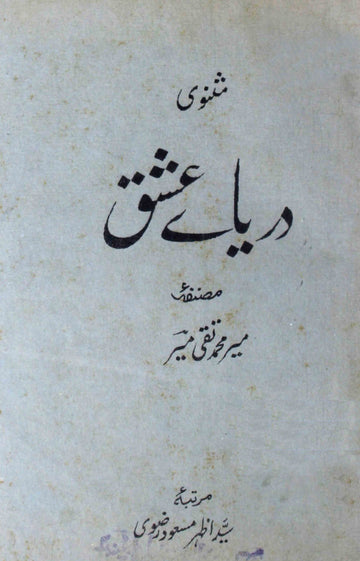 مثنوی
دریائے عشق
مصنفۂ
میر محمد تقی میرؔ
مرتبۂ
سیّد اظہر مسعود رضوی